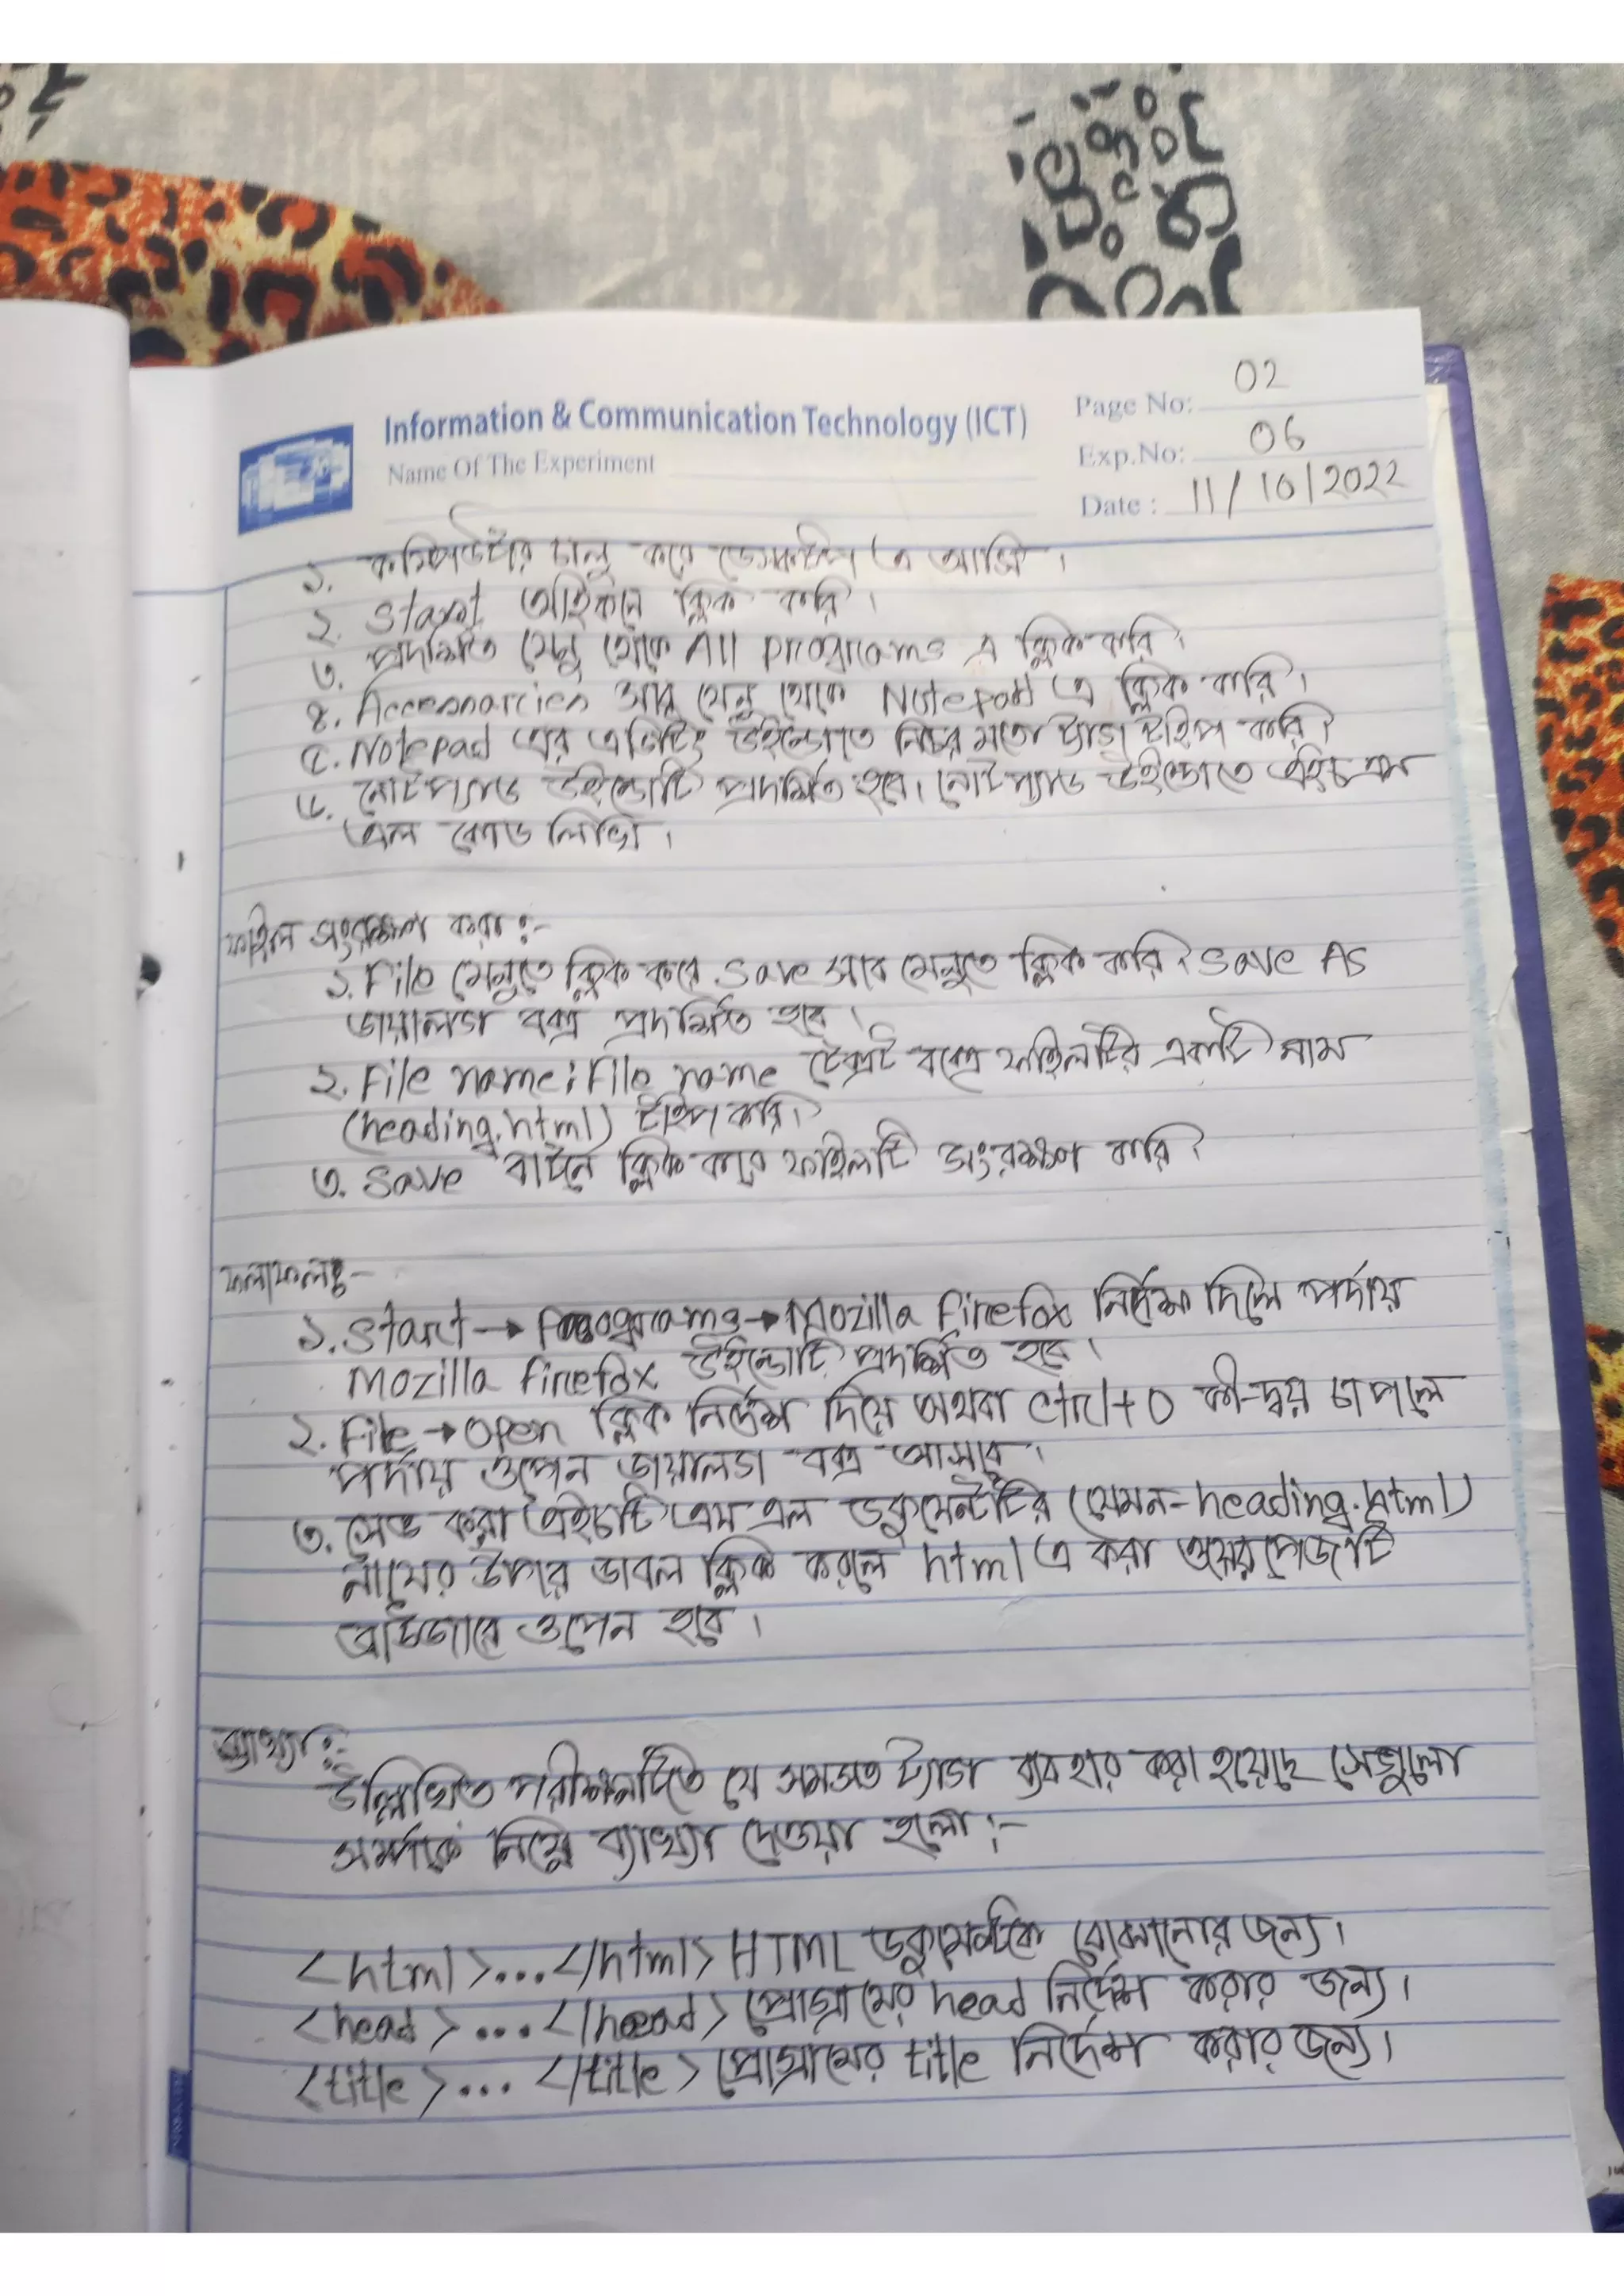 Information & Communication Technology (ICT)
Name Of The Experiment
Page No: 02
Exp.No: 06
Date : 11/10/2022
১. কম্পিউটার চালু করে ডেস্কটপ এ আসি।
২. Start আইকনে ক্লিক করি।
৩. প্রদর্শিত মেনু থেকে All programs এ ক্লিক করি।
৪. Accessories সাব মেনু থেকে Notepad এ ক্লিক করি।
৫. Notepad এর এডিটিং উইন্ডোতে নিচের মতো ট্যাগ টাইপ করি।
৬. নোটপ্যাড উইন্ডোটি প্রদর্শিত হবে। নোটপ্যাড উইন্ডোতে এইচ এম
এল কোড লিখি।
ফাইল সংরক্ষণ করা:-
১. File মেনুতে ক্লিক করে Save সাব মেনুতে ক্লিক করি। Save As
ডায়ালগ বক্স প্রদর্শিত হবে।
২. File name: File name টেক্সট বক্সে ফাইলটির একটি নাম
(heading.html) টাইপ করি।
৩. Save বাটনে ক্লিক করে ফাইলটি সংরক্ষণ করি।
ফলাফলঃ-
১. Start → Programs → Mozilla Firefox নির্দেশ দিলে পর্দায়
Mozilla Firefox উইন্ডোটি প্রদর্শিত হবে।
২. File → Open ক্লিক নির্দেশ দিয়ে অথবা Ctrl+O কী-দ্বয় চাপলে
পর্দায় ওপেন ডায়ালগ বক্স আসবে।
৩. সেভ করা এইচটি এম এল ডকুমেন্টটির (যেমন-heading.html)
নামের উপরে ডাবল ক্লিক করলে html এ করা ওয়েব পেজটি
ব্রাউজারে ওপেন হবে।
ব্যাখ্যা:-
উল্লিখিত পরীক্ষনটিতে যে সমস্ত ট্যাগ ব্যবহার করা হয়েছে সেগুলো
সর্ম্পকে নিম্নে ব্যাখ্যা দেওয়া হলো:-
<html>...</html> HTML ডকুমেন্টকে বোঝানোর জন্য।
<head>...</head> প্রোগ্রামের head নির্দেশ করার জন্য।
<title>... </title> প্রোগ্রামের title নির্দেশ করার জন্য।